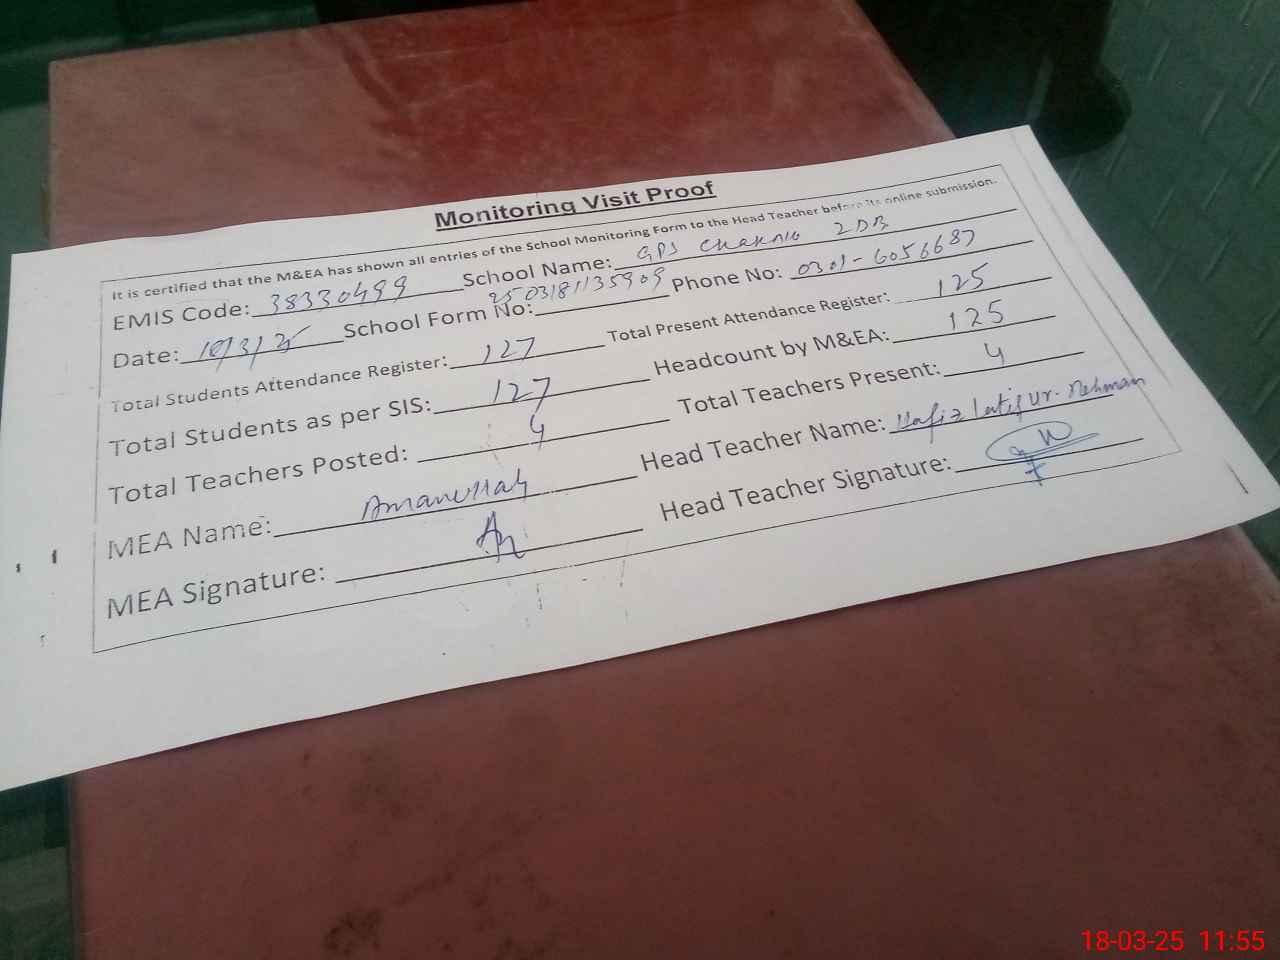 Monitoring Visit Proof
It is certified that the M&EA has shown all entries of the School Monitoring Form to the Head Teacher before its online submission.
EMIS Code: 38330499 School Name: GPS Chak No 2DB
Date: 18/3/25 School Form No: 2503181135909 Phone No: 0301-6056687
Total Students Attendance Register: 127 Total Present Attendance Register: 125
Total Students as per SIS: 127 Headcount by M&EA: 125
Total Teachers Posted: 4 Total Teachers Present: 4
MEA Name: Amanullah Head Teacher Name: Hafiz Latif ur-Rehman
MEA Signature: Head Teacher Signature:
18-03-25 11:55